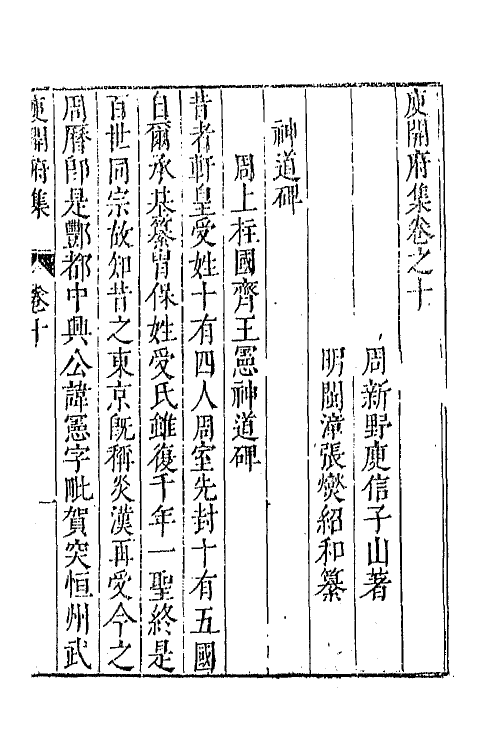 庾開府集卷之十
周新野庾信子山著
明閩漳張燮紹和纂
神道碑
周上柱國齊王憲神道碑
昔者軒皇受姓十有四人周室先封十有五國
自爾承基纂胄保姓受氏雖復千年一聖終是
百世同宗故知昔之東京旣稱炎漢再受今之
周曆卽是酆都中興公諱憲字毗賀突恒州武
庾開府集 卷十 一